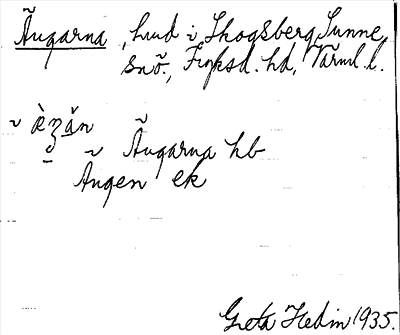 Ängarna, hmd i Skogsberg, Sunne
sn., Fryksd. hd, Värml. l.
Ängarna hb
Ängen ek
Greta Hedin 1935.